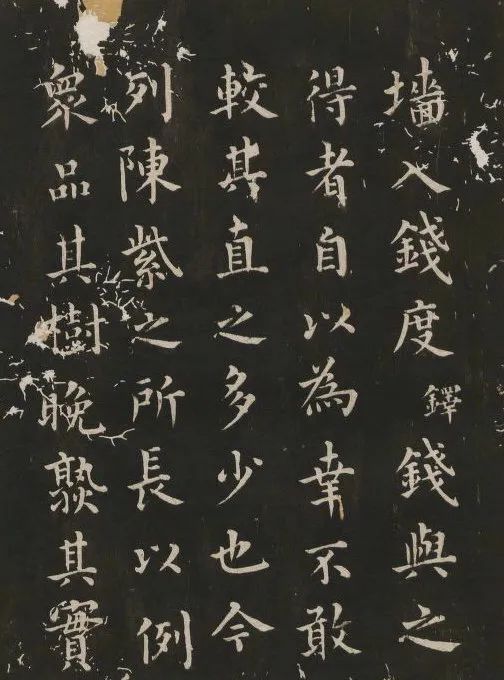 墻入錢度鐸錢與之
得者自以為幸不敢
較其直之多少也今
列陳紫之所長以例
衆品其樹晚熟其實